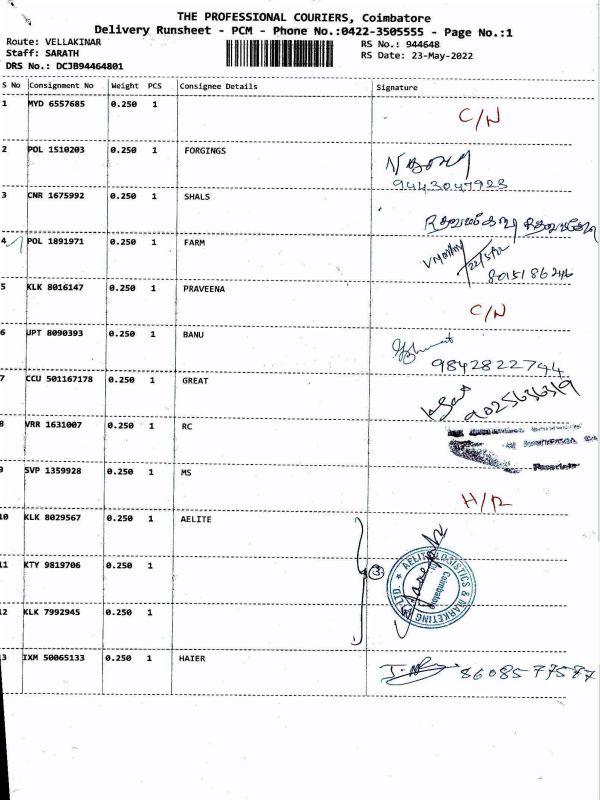 THE PROFESSIONAL COURIERS, Coimbatore
Delivery Runsheet - PCM - Phone No.:0422-3505555 - Page No.:1
Route: VELLAKINAR
RS No.: 944648
Staff: SARATH
RS Date: 23-May-2022
DRS No.: DCJB94464801
S No Consignment No Weight PCS Consignee Details Signature
1 MYD 6557685 0.250 1 C/N
2 POL 1510203 0.250 1 FORGINGS
9443047923
3 CNR 1675992 0.250 1 SHALS
4 POL 1891971 0.250 1 FARM
8015186246
5 KLK 8016147 0.250 1 PRAVEENA C/N
6 JPT 8090393 0.250 1 BANU
9842822744
7 CCU 501167178 0.250 1 GREAT
9025636319
8 VRR 1631007 0.250 1 RC
9 SVP 1359928 0.250 1 MS H/R
10 KLK 8029567 0.250 1 AELITE
11 KTY 9819706 0.250 1 3
AELITE LOGISTICS & MARKETING P LTD.
Coimbatore
12 KLK 7992945 0.250 1
3 IXM 50065133 0.250 1 HAIER 8608577587